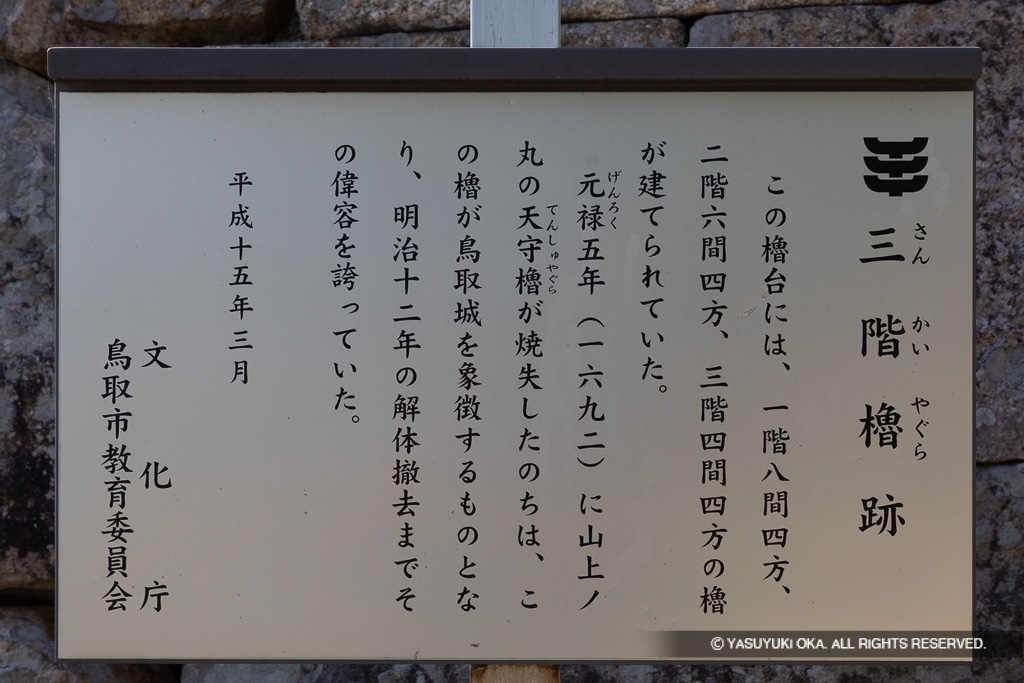 三階櫓跡
さん かい やぐら
この櫓台には、一階八間四方、
二階六間四方、三階四間四方の櫓
が建てられていた。
元禄五年（一六九二）に山上ノ
げんろく
丸の天守櫓が焼失したのちは、こ
てんしゅやぐら
の櫓が鳥取城を象徴するものとな
り、明治十二年の解体撤去までそ
の偉容を誇っていた。
平成十五年三月
文化庁
鳥取市教育委員会
© YASUYUKI OKA. ALL RIGHTS RESERVED.